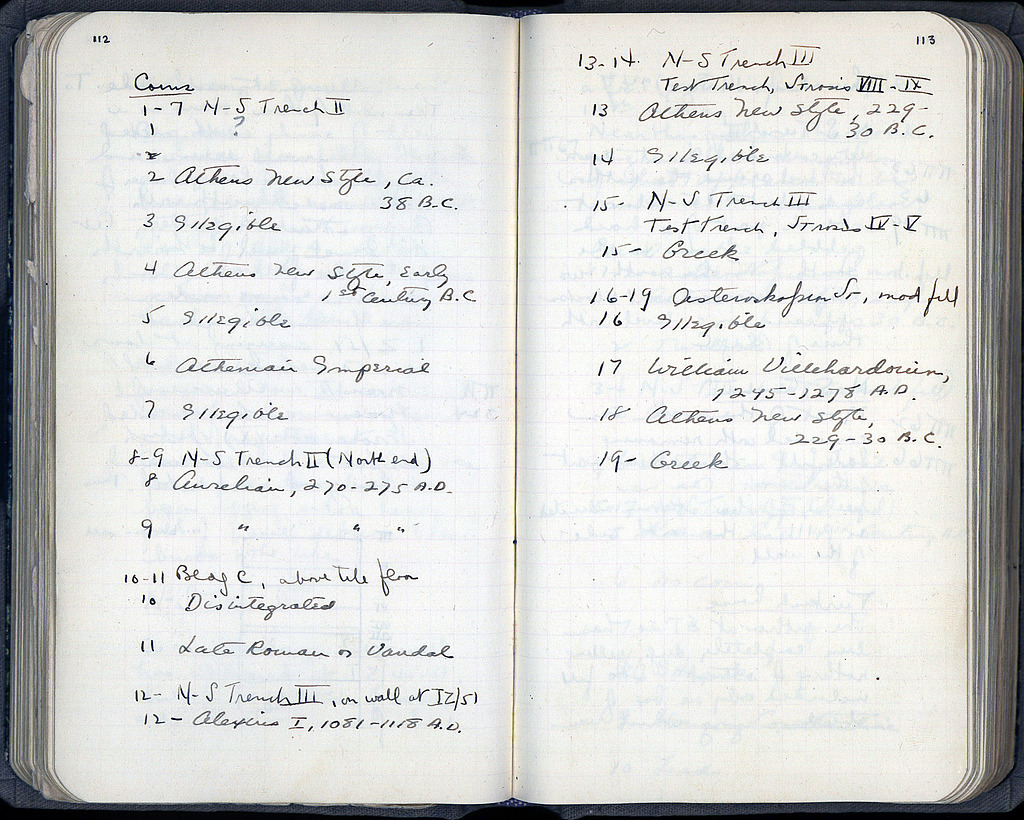 112
Coins
1-7 N-S Trench II
1 ?
2 Athens New Style, Ca.
38 B.C.
3 Illegible
4 Athens New Style, Early
1st Century B.C
5 Illegible
6 Athenian Imperial
7 Illegible
8-9 N-S Trench II (North end)
8 Aurelian, 270-275 A.D.
9 " " "
10-11 Bldg C, above tile floor
10 Disintegrated
11 Late Roman or Vandal
12- N-S Trench III, on wall at IZ/51
12- Alexius I, 1081-1118 A.D.
113
13-14. N-S Trench III
Test Trench, Strosis VIII-IX
13 Athens New Style, 229-
30 B.C.
14 Illegible
15- N-S Trench III
Test Trench, Strosis IV-V
15- Greek
16-19 Asteroskopeion St., mod fill
16 Illegible
17 William Villehardouin,
1245-1278 A.D.
18 Athens New Style,
229-30 B.C.
19- Greek